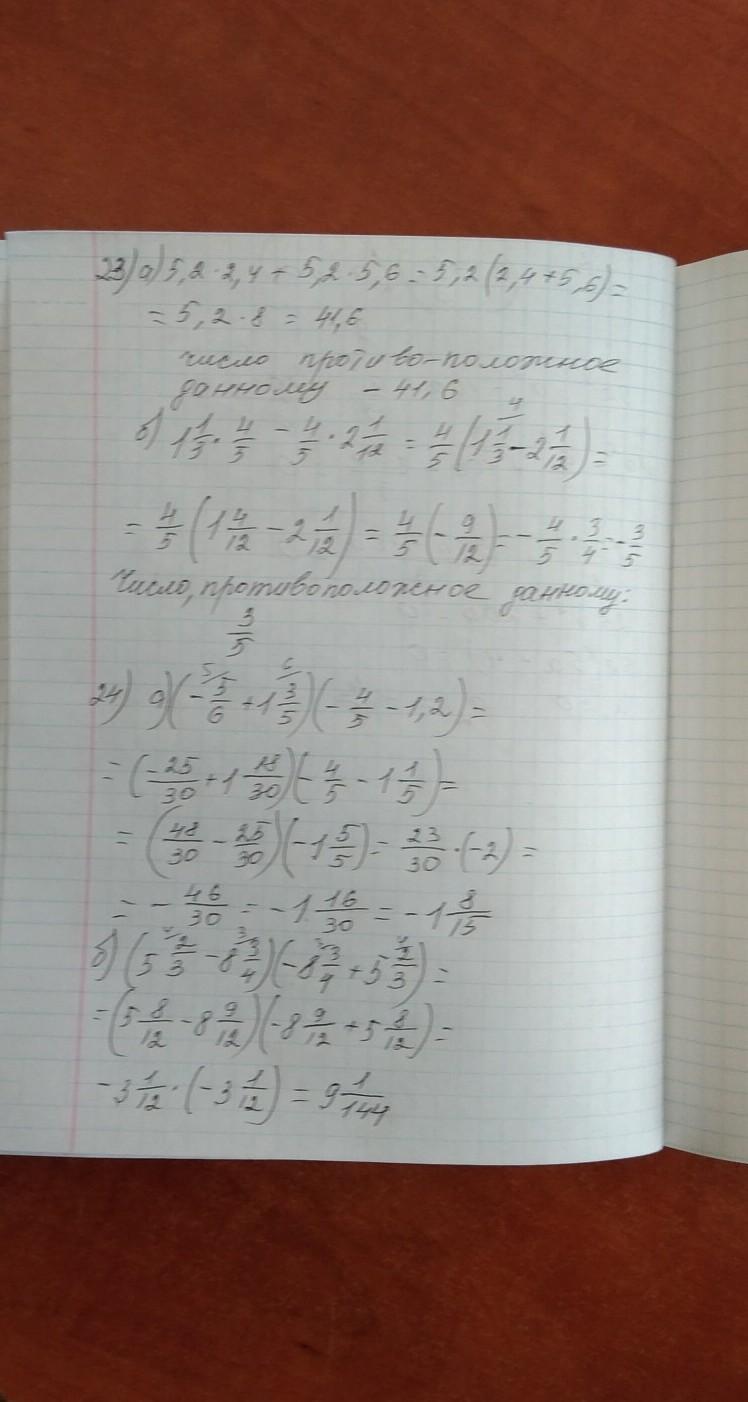 23) а) 5,2 · 2,4 + 5,2 · 5,6 = 5,2 (2,4 + 5,6) =
= 5,2 · 8 = 41,6
число противо-положное
данному - 41,6
б) 1 1/3 · 4/5 - 4/5 · 2 1/12 = 4/5 (1 1/3 - 2 1/12) =
= 4/5 (1 4/12 - 2 1/12) = 4/5 (- 9/12) = - 4/5 · 3/4 = - 3/5
Число, противоположное данному:
3/5
24) а) (- 5/6 + 1 3/5) (- 4/5 - 1,2) =
= (-25/30 + 1 18/30) (- 4/5 - 1 1/5) =
= (48/30 - 25/30) (-1 5/5) = 23/30 · (-2) =
= - 46/30 = -1 16/30 = -1 8/15
б) (5 2/3 - 8 3/4) (-8 3/4 + 5 2/3) =
= (5 8/12 - 8 9/12) (-8 9/12 + 5 8/12) =
-3 1/12 · (-3 1/12) = 9 1/144